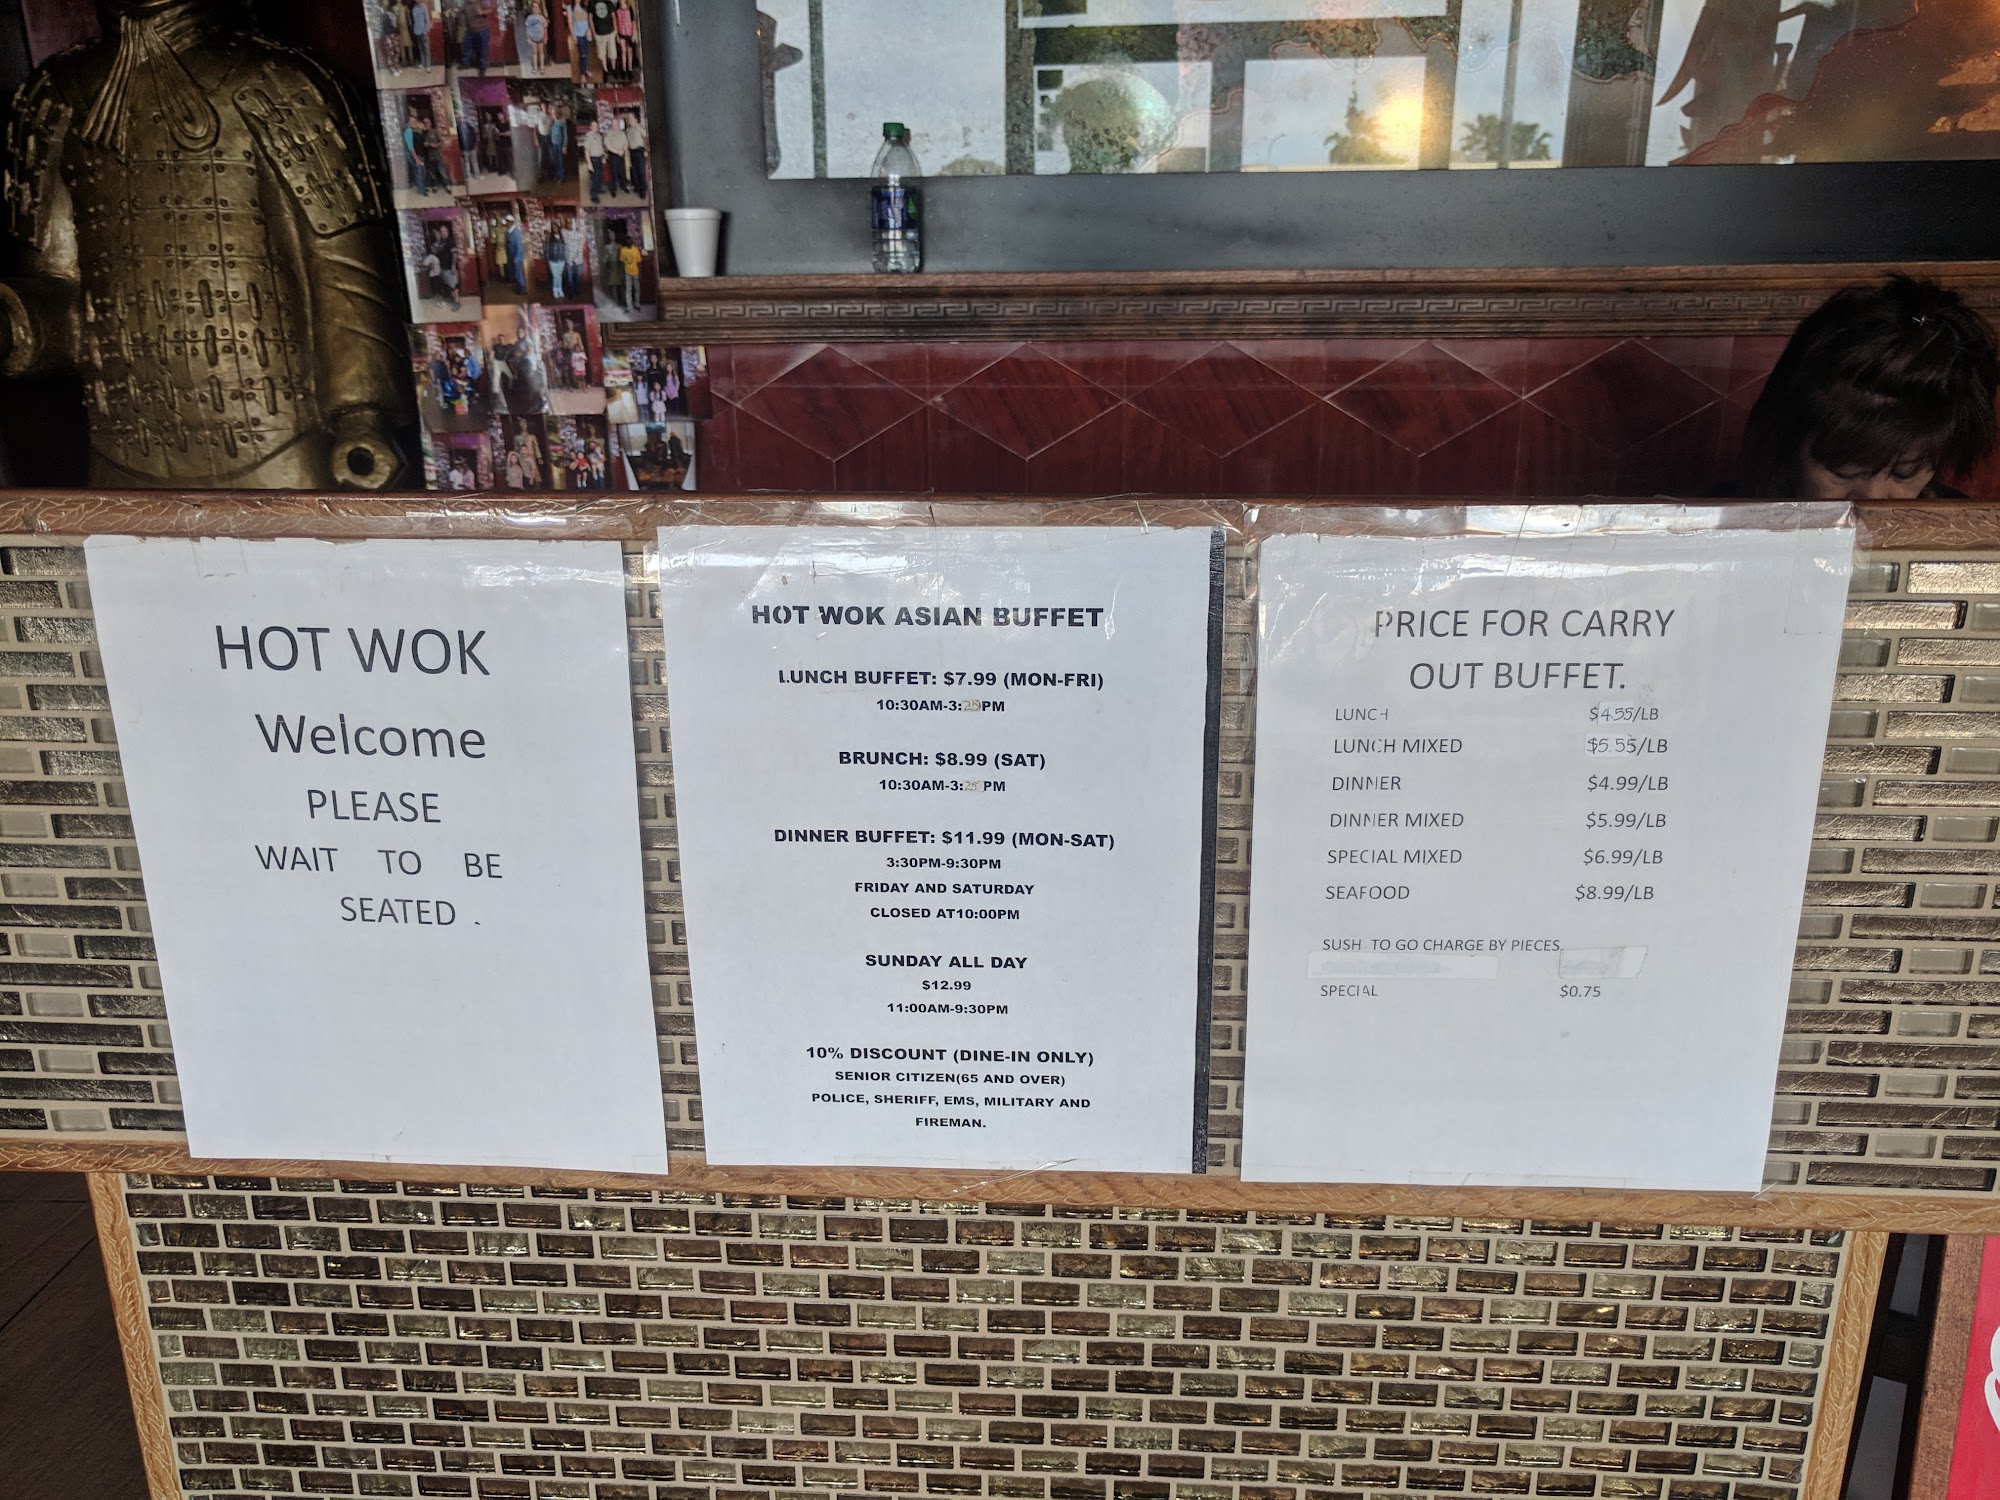 HOT WOK
Welcome
PLEASE
WAIT TO BE
SEATED .
HOT WOK ASIAN BUFFET
LUNCH BUFFET: $7.99 (MON-FRI)
10:30AM-3:25PM
BRUNCH: $8.99 (SAT)
10:30AM-3:25PM
DINNER BUFFET: $11.99 (MON-SAT)
3:30PM-9:30PM
FRIDAY AND SATURDAY
CLOSED AT10:00PM
SUNDAY ALL DAY
$12.99
11:00AM-9:30PM
10% DISCOUNT (DINE-IN ONLY)
SENIOR CITIZEN(65 AND OVER)
POLICE, SHERIFF, EMS, MILITARY AND
FIREMAN.
PRICE FOR CARRY
OUT BUFFET.
LUNCH $4.55/LB
LUNCH MIXED $5.55/LB
DINNER $4.99/LB
DINNER MIXED $5.99/LB
SPECIAL MIXED $6.99/LB
SEAFOOD $8.99/LB
SUSHI TO GO CHARGE BY PIECES
SPECIAL $0.75